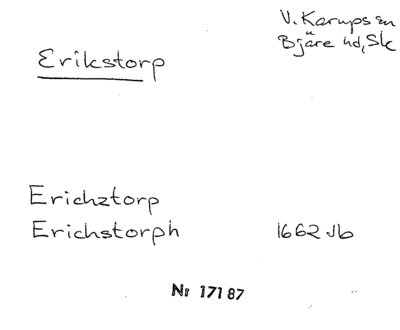 V. Karups sn
Erikstorp
Bjäre hd, Sk
Erichztorp
Erichstorph 1662 Jb
Nr 17187